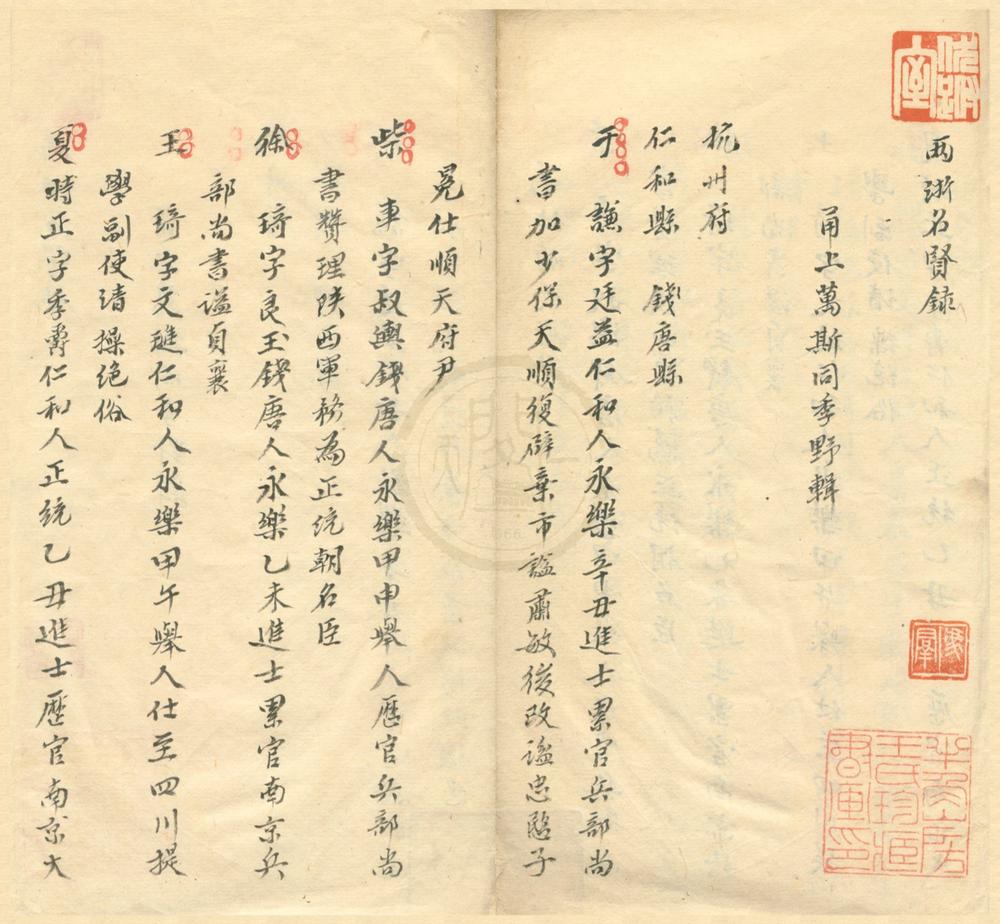 兩浙名賢錄
甬上萬斯同季野輯
杭州府
仁和縣錢唐縣
于謙字廷益仁和人永樂辛丑進士累官兵部尚
書加少保天順復辟棄市諡肅敏後改諡忠愍子
冕仕順天府尹
柴車字叔輿錢唐人永樂甲申舉人歷官兵部尚
書贊理陝西軍務為正統朝名臣
徐琦字良玉錢唐人永樂乙未進士累官南京兵
部尚書諡貞襄
王琦字文璡仁和人永樂甲午舉人仕至四川提
學副使清操絕俗
夏時正字季爵仁和人正統乙丑進士歷官南京大